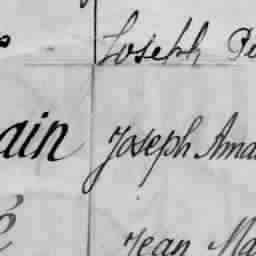 Joseph
ain Joseph Ama
Jean Ma